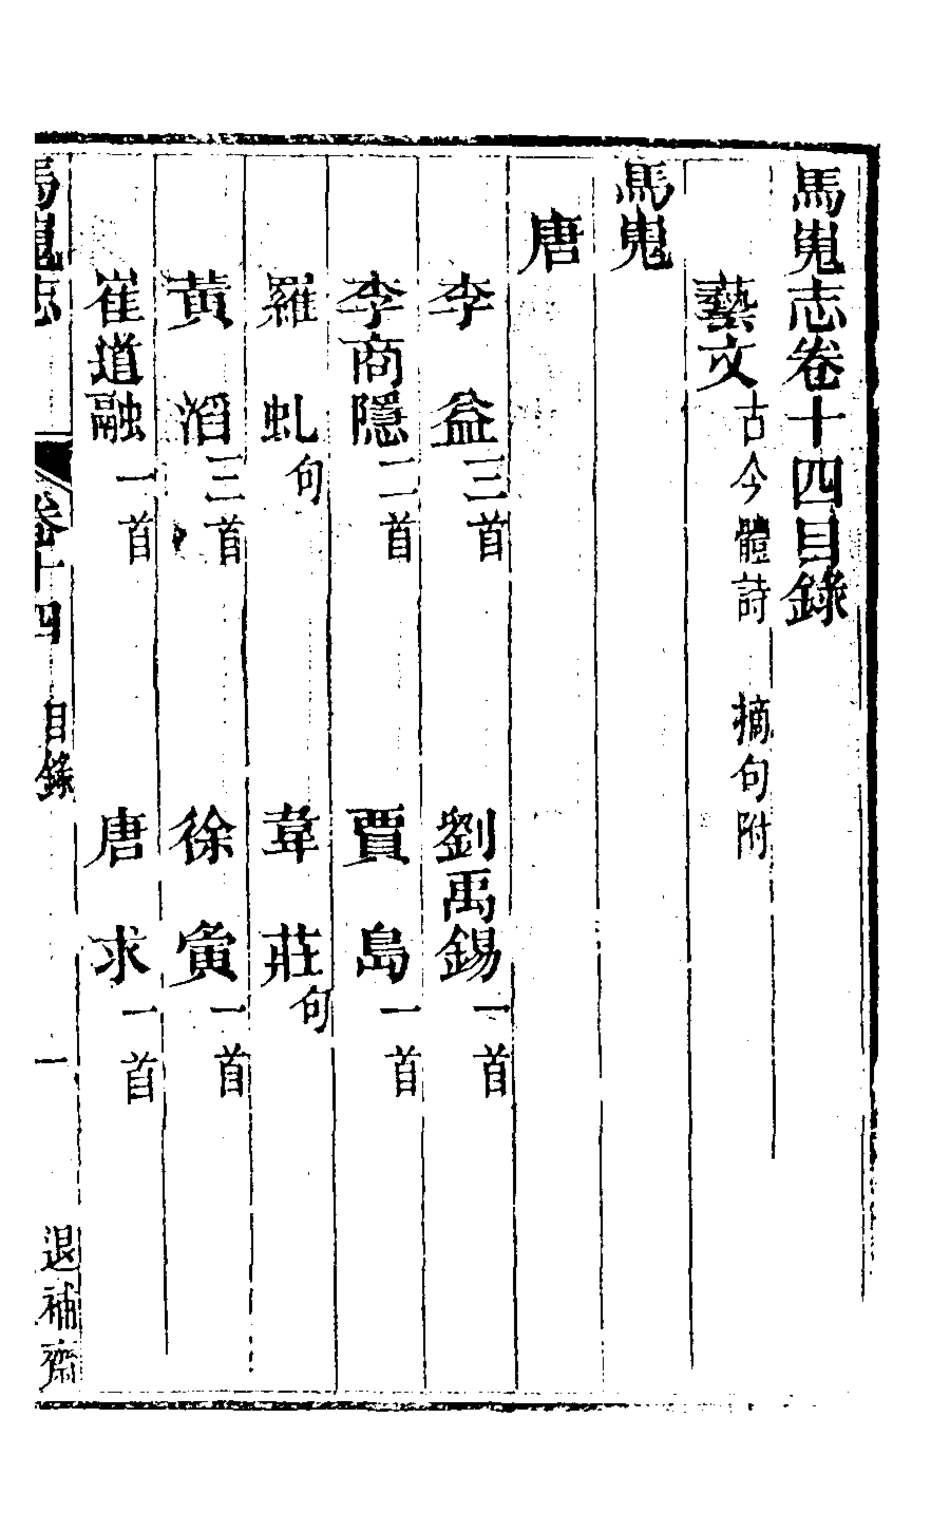 馬嵬志卷十四目錄
藝文 古今體詩 摘句附
馬嵬
唐
李益 三首 劉禹錫 一首
李商隱 二首 賈島 一首
羅虬 句 韋莊 句
黃滔 三首 徐夤 一首
崔道融 一首 唐求 一首
馬嵬志 卷十四 目錄 一 退補齋